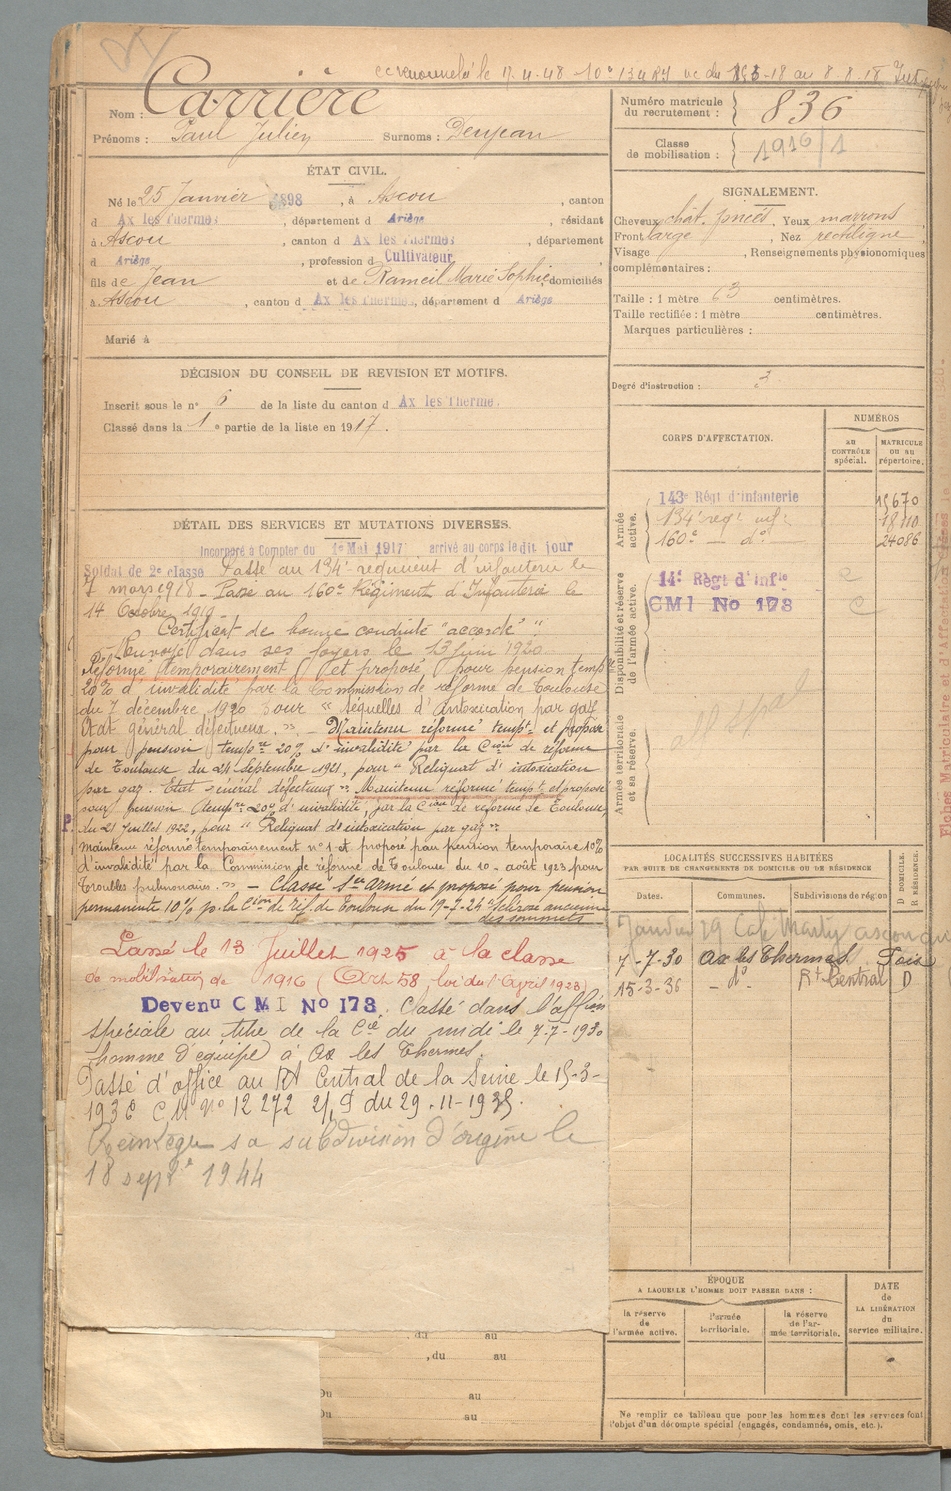 renouvelé le 17-4-48 10e 134 RI uc du -18 au 8-8-18
Nom : Carrière
Prénoms : Paul Julien Surnoms : Denjean
Numéro matricule du recrutement : 836
Classe de mobilisation : 1916/1
ÉTAT CIVIL.
Né le 25 Janvier 1898, à Ascou, canton
d Ax les Thermes, département d Ariège, résidant
à Ascou, canton d Ax les Thermes, département
d Ariège, profession d Cultivateur
fils de Jean et de Rameil Marie Sophie, domiciliés
à Ascou, canton d Ax les Thermes, département d Ariège
Marié à
SIGNALEMENT.
Cheveux chât. foncés, Yeux marrons
Front large, Nez rectiligne,
Visage , Renseignements physionomiques
complémentaires :
Taille : 1 mètre 63 centimètres.
Taille rectifiée : 1 mètre centimètres.
Marques particulières :
Degré d'instruction : 3
DÉCISION DU CONSEIL DE REVISION ET MOTIFS.
Inscrit sous le n° 6 de la liste du canton d Ax les Therme.
Classé dans la 1e partie de la liste en 1917.
CORPS D'AFFECTATION.
NUMÉROS
au CONTRÔLE spécial.
MATRICULE ou au répertoire.
Armée active.
143e Régt d'Infanterie 15670
134e regt inf. 18110
160e — do 24086
Disponibilité et réserve de l'armée active.
14e Régt d'Infie
CMI No 173
Armée territoriale et sa réserve.
DÉTAIL DES SERVICES ET MUTATIONS DIVERSES.
Incorporé à Compter du 1er Mai 1917 arrivé au corps le dit jour
Soldat de 2e classe Passé au 134e régiment d'infanterie le
7 mars 1918 - Passé au 160e Régiment d'Infanterie le
14 Octobre 1919
Certificat de bonne conduite "accordé".
Renvoyé dans ses foyers le 13 juin 1920
Réformé temporairement et proposé pour pension tempre
20% d'invalidité par la Commission de réforme de Toulouse
du 7 décembre 1920 pour "séquelles d'intoxication par gaz
Etat général défectueux." - Maintenu réformé tempt et proposé
pour pension tempre 20% d'invalidité par la Cion de réforme
de Toulouse du 21 Septembre 1921, pour "Reliquat d'intoxication
par gaz. Etat général défectueux" Maintenu réformé tempt et proposé
pour pension tempre 20% d'invalidité, par la Cion de réforme de Toulouse
P.
du 21 Juillet 1922, pour "Reliquat d'intoxication par gaz"
Maintenu réformé temporairement n°1 et proposé pour pension temporaire 10%
d'invalidité par la Commission de réforme de Toulouse du 10 août 1923 pour
Troubles pulmonaires." - Classé Sce Armé et proposé pour pension
permanente 10% p. la Cion de réf. de Toulouse du 19-7-24 "sclérose ancienne
des sommets
Passé le 13 Juillet 1925 à la classe
de mobilisation de 1916 (Art 58, loi du 1 Avril 1923)
Devenu CMI No 173. Classé dans l'affon
spéciale au titre de la Cie du midi le 7-7-1930
homme d'équipe à Ax les Thermes.
Passé d'office au Rt Central de la Seine le 15-3-
1936 CM n° 12272 du 29-11-1935.
Réintègre sa subdivision d'origine le
18 septe 1944
LOCALITÉS SUCCESSIVES HABITÉES
PAR SUITE DE CHANGEMENTS DE DOMICILE OU DE RÉSIDENCE
D DOMICILE. R RÉSIDENCE.
Dates. Communes. Subdivisions de région
Janvier 29 Café Marty ascou
7-7-30 Ax les Thermes Foix
15-3-36 - do - Rt Central D
ÉPOQUE
A LAQUELLE L'HOMME DOIT PASSER DANS :
la réserve de l'armée active.
l'armée territoriale.
la réserve de l'armée territoriale.
DATE de LA LIBÉRATION du service militaire.
du au
, du au
Du au
Du au
Ne remplir ce tableau que pour les hommes dont les services font
l'objet d'un décompte spécial (engagés, condamnés, omis, etc.).